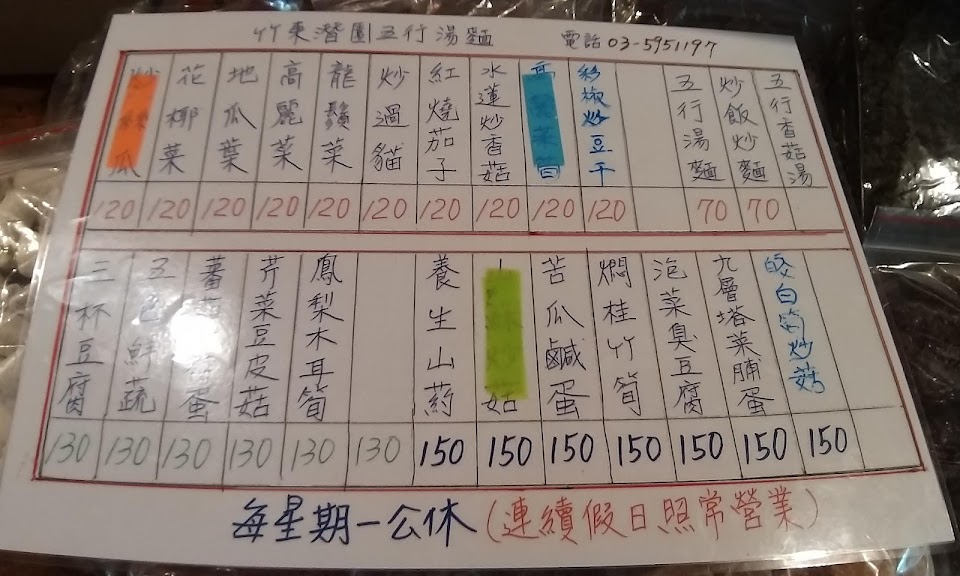 竹東潛園五行湯麵 電話 03-5951197
瓜
花椰菜
地瓜葉
高麗菜
龍鬚菜
炒過貓
紅燒茄子
水蓮炒香菇
彩椒炒豆干
五行湯麵
炒飯炒麵
五行香菇湯
120 120 120 120 120 120 120 120 120 120 70 70
三杯豆腐
五色鮮蔬
蕃茄蛋
芹菜豆皮菇
鳳梨木耳筍
養生山葯
菇
苦瓜鹹蛋
燜桂竹筍
泡菜臭豆腐
九層塔菜脯蛋
皎白筍炒菇
130 130 130 130 130 130 150 150 150 150 150 150 150
每星期一公休(連續假日照常營業)